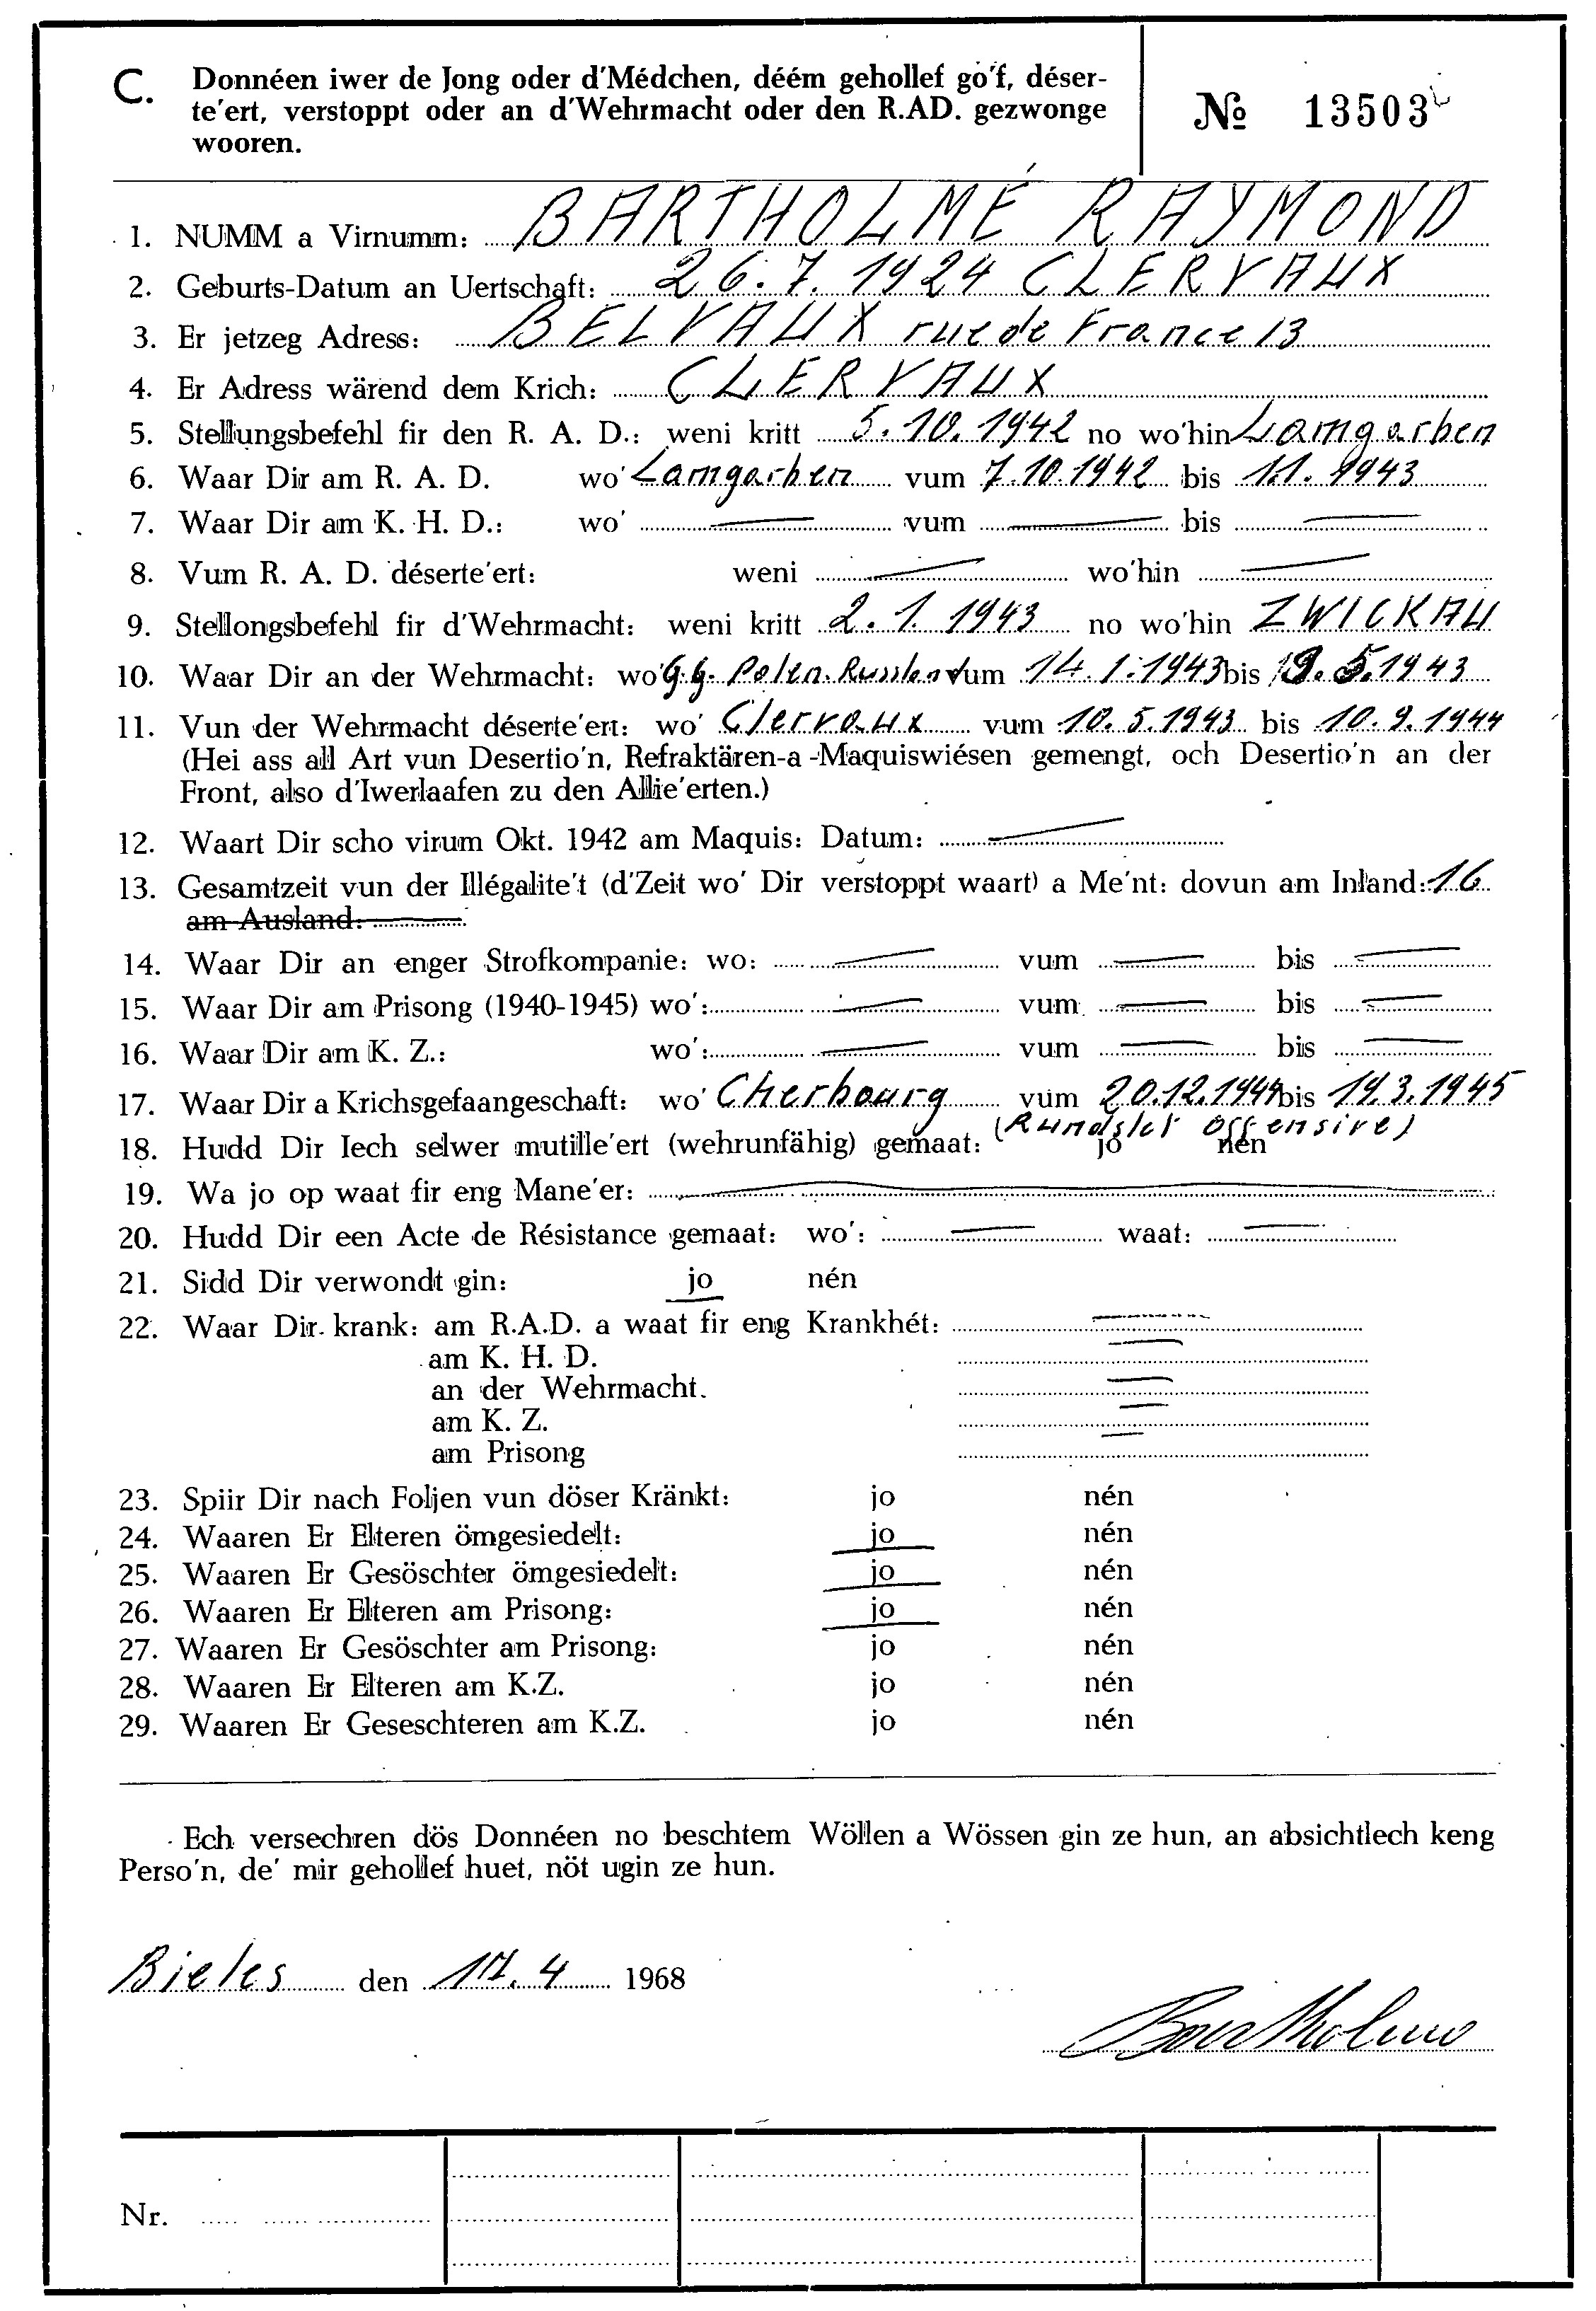 C. Donnéen iwer de Jong oder d'Médchen, déém gehollef go'f, déser-
te'ert, verstoppt oder an d'Wehrmacht oder den R.AD. gezwonge
wooren.
№ 13503
1. NUMM a Virnumm: BARTHOLMÉ RAYMOND
2. Geburts-Datum an Uertschaft: 26.7.1924 CLERVAUX
3. Er jetzeg Adress: BELVAUX rue de France 13
4. Er Adress wärend dem Krich: CLERVAUX
5. Stellungsbefehl fir den R. A. D.: weni kritt 5.10.1942 no wo'hin Lamgarben
6. Waar Dir am R. A. D. wo' Lamgarben vum 7.10.1942 bis 1.1.1943
7. Waar Dir am K. H. D.: wo' — vum — bis —
8. Vum R. A. D. déserte'ert: weni — wo'hin —
9. Stellongsbefehl fir d'Wehrmacht: weni kritt 2.1.1943 no wo'hin ZWICKAU
10. Waar Dir an der Wehrmacht: wo' G.G. Polen. Russland vum 14.1.1943 bis 9.5.1943
11. Vun der Wehrmacht déserte'ert: wo' Clervaux vum 10.5.1943 bis 10.9.1944
(Hei ass all Art vun Desertio'n, Refraktären-a-Maquiswiésen gemengt, och Desertio'n an der
Front, also d'Iwerlaafen zu den Allie'erten.)
12. Waart Dir scho virum Okt. 1942 am Maquis: Datum: —
13. Gesamtzeit vun der Illégalite't (d'Zeit wo' Dir verstoppt waart) a Me'nt: dovun am Inland: 16
am Ausland: —
14. Waar Dir an enger Strofkompanie: wo: — vum — bis —
15. Waar Dir am Prisong (1940-1945) wo': — vum — bis —
16. Waar Dir am K. Z.: wo': — vum — bis —
17. Waar Dir a Krichsgefaangeschaft: wo' Cherbourg vum 20.12.1944 bis 14.3.1945
(Rundstet Offensive)
18. Hudd Dir Iech selwer mutille'ert (wehrunfähig) gemaat: jo nén
19. Wa jo op waat fir eng Mane'er: —
20. Hudd Dir een Acte de Résistance gemaat: wo': — waat: —
21. Sidd Dir verwondt gin: jo nén
22. Waar Dir krank: am R.A.D. a waat fir eng Krankhét: —
am K. H. D. —
an der Wehrmacht. —
am K. Z. —
am Prisong —
23. Spiir Dir nach Foljen vun döser Kränkt: jo nén
24. Waaren Er Elteren ömgesiedelt: jo nén
25. Waaren Er Gesöschter ömgesiedelt: jo nén
26. Waaren Er Elteren am Prisong: jo nén
27. Waaren Er Gesöschter am Prisong: jo nén
28. Waaren Er Elteren am K.Z. jo nén
29. Waaren Er Geseschteren am K.Z. jo nén
Ech versechren dös Donnéen no beschtem Wöllen a Wössen gin ze hun, an absichtlech keng
Perso'n, de' mir gehollef huet, nöt ugin ze hun.
Bieles den 17.4 1968
Bartholmé
Nr.